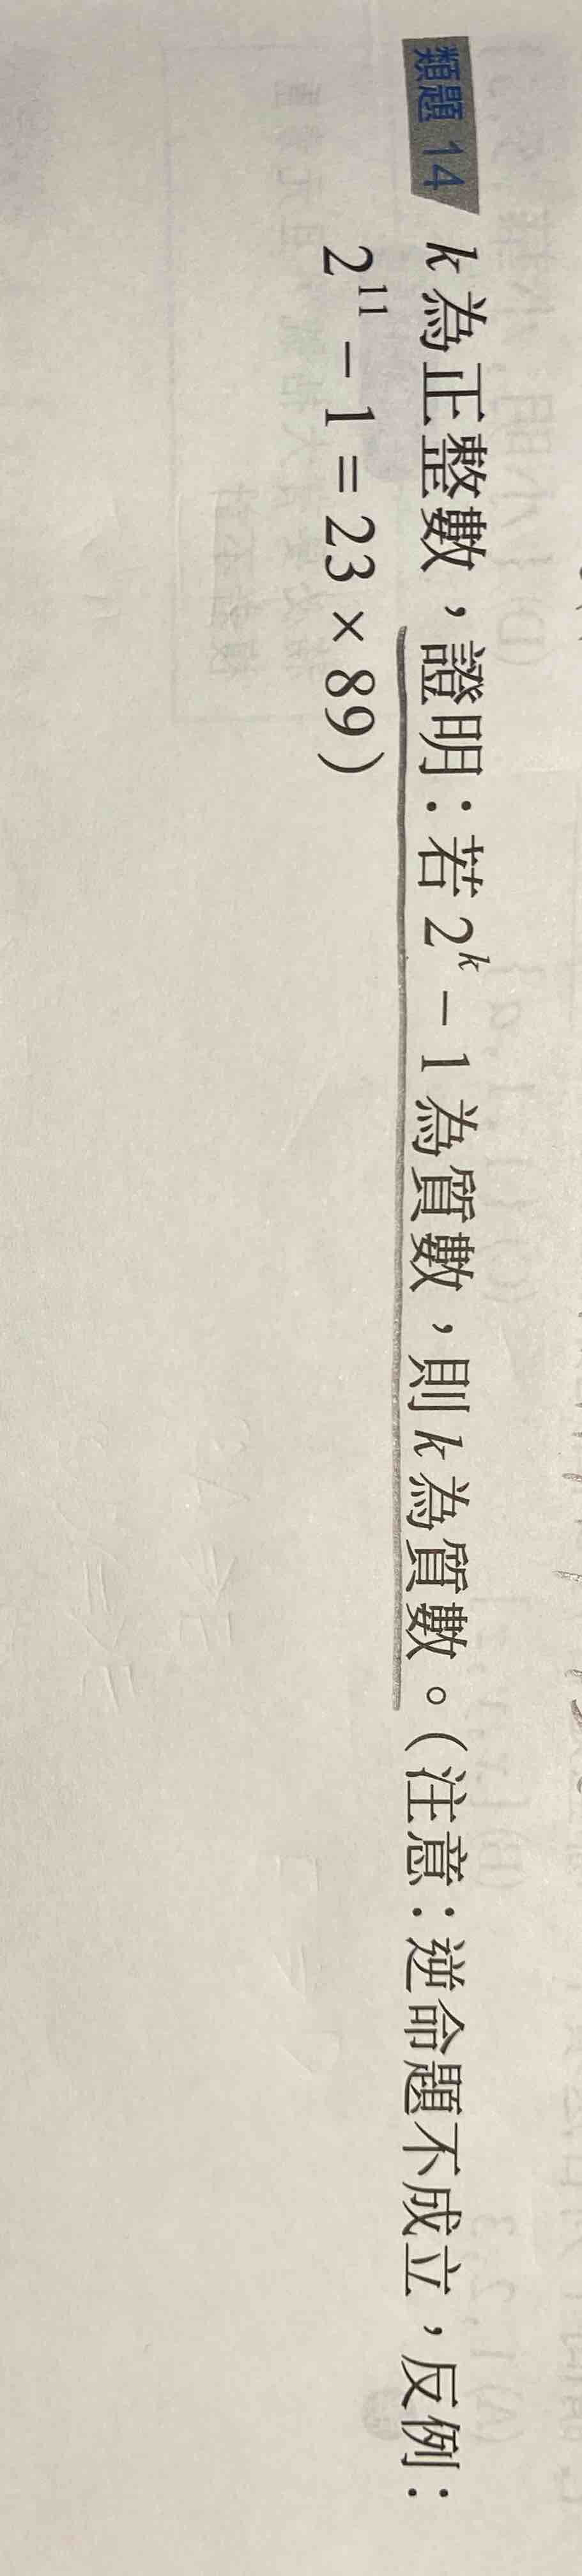 類題 14 k 為正整數，證明：若 2ᵏ − 1 為質數，則 k 為質數。（注意：逆命題不成立，反例：
2¹¹ − 1 = 23 × 89）